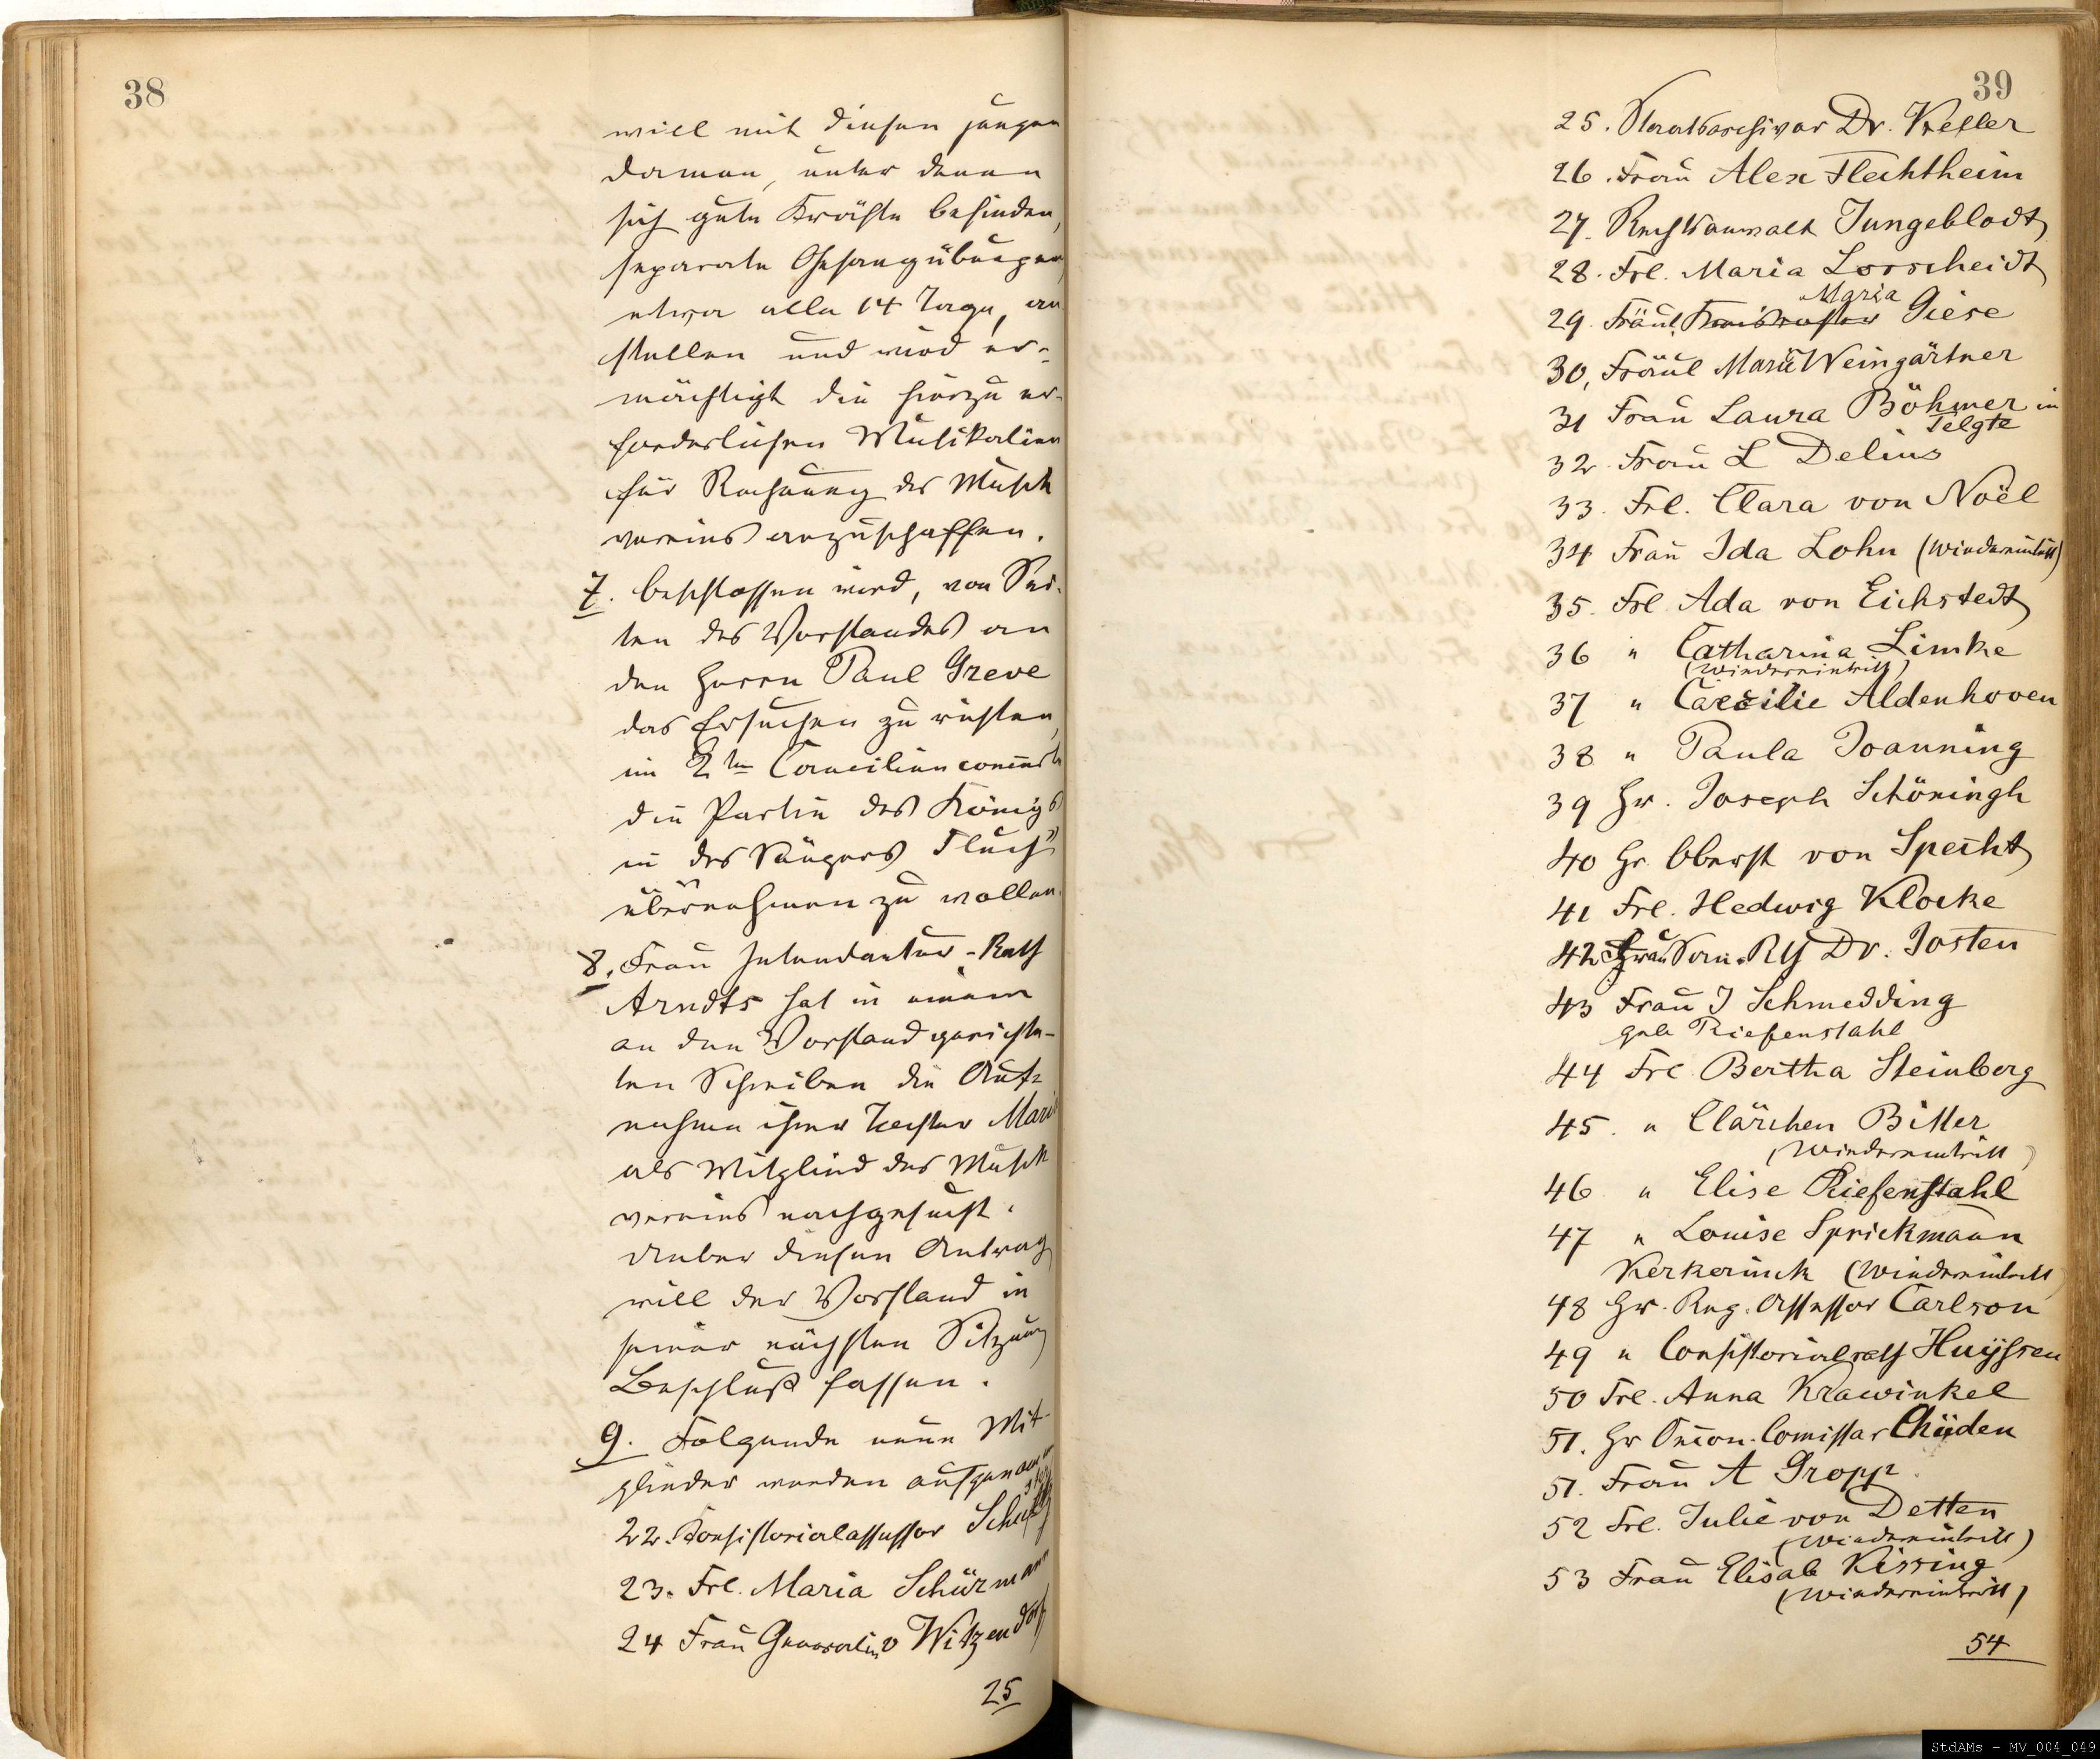 38
will mit diesen jungen
Damen, unter denen
sich gute Kräfte befinden,
separate Gesangübungen
etwa alle 14 Tage, an
stellen und wird er-
mächtigt die hierzu er-
forderlichen Musikalien
für Rechnung des Musik
vereins anzuschaffen.
7. beschlossen wird, von Sei-
ten des Vorstandes an
den Herrn Paul Greve
das Ersuchen zu richten,
im 2ten Caecilienconcert
die Partie des Königs
in des Sängers Fluch"
übernehmen zu wollen.
8. Frau Intendantur-Rath
Arndts hat in einem
an den Vorstand gerichte-
ten Schreiben die Auf-
nahme ihrer Tochter Maria
als Mitglied des Musik
vereins nachgesucht.
Ueber diesen Antrag
will der Vorstand in
seiner nächsten Sitzung
Beschluß fassen.
9. Folgende neue Mit-
glieder werden aufgenommen
22. Konsistorialassessor
23. Frl. Maria Schürmann
24 Frau Generalin v Witzendorf
25
39
25. Staatsarchivar Dr. Keller
26. Frau Alex Flechtheim
27. Rechtsanwalt Jungeblodt
28. Frl. Maria Lorscheidt
Maria
29. Fräul. Giese
30, Fräul Maria Weingärtner
31 Frau Laura Böhmer in
Telgte
32. Frau L Delius
33. Frl. Clara von Noël
34 Frau Ida Lohn (Wiedereintritt)
35. Frl Ada von Eichstedt
36 " Catharina Limke
(Wiedereintritt)
37 " Caecilie Aldenhoven
38 " Paula Joanning
39 Hr. Joseph Schöningh
40 Hr. Oberst von Specht
41 Frl. Hedwig Klocke
42 Frau San. Rth Dr. Josten
43 Frau J Schmedding
geb Riefenstahl
44 Frl Bertha Steinberg
45. " Clärchen Bitter
(Wiedereintritt)
46 " Elise Riefenstahl
47 " Louise Sprickmann
Kerkerinck (Wiedereintritt
48 Hr. Reg. Assessor Carlson
49 " Consistorialrath Huyssen
50 Frl. Anna Krawinkel
51. Hr Oecon. Comissar Chüden
51. Frau A Gropp
52 Frl. Julie von Detten
(Wiedereintritt)
53 Frau Elisab Kissing
(Wiedereintritt)
54
StdAMs - MV_004_049